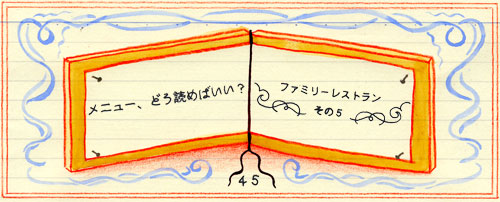 メニュー、どろ読めばいい?
ファミリーレストラン
その5
45